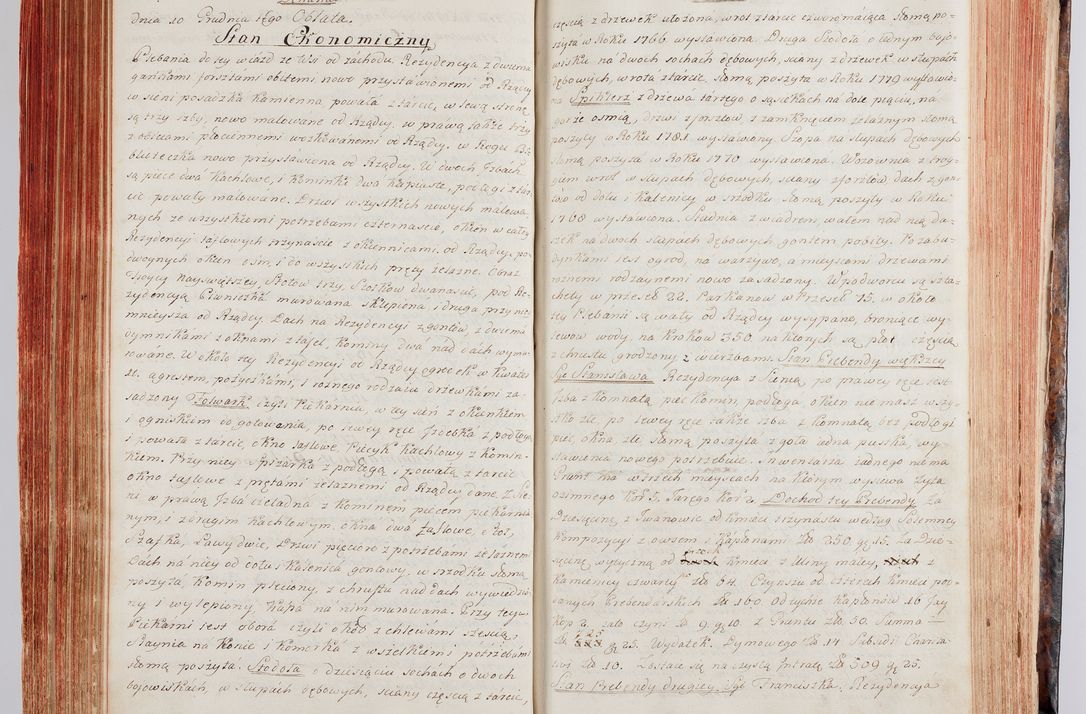 dnia 10 Grudnia 1790 Oblata.
Stan Ekonomiczny
Plebania do tey wiazd ze Wsi od zachodu. Rezydencya z dwuma
gankami forsztami obitemi nowo przystawionemi od Rządcy
w sieni posadzka kamienna, powała z tarcic, w lewą stronę
są trzy izby, nowo malowane od Rządcy, w prawą także trzy
z obicami płociennemi woskowanemi od Rządcy, w Rogu Bi-
blioteczka nowo przystawiona od Rządcy. W dwoch Izbach
są piece dwa kachlowe, i kominki dwa kapiaste, podłogi z tar-
cic powały malowane. Drzwi wszystkich nowych malowa-
nych ze wszystkiemi potrzebami czternascie, okien w całey
Rezydencyi taflowych trzynascie z okiennicami od Rządcy, po-
dwoynych okien osm, i do wszystkich pręty żelazne. Obraz
Troycy Nayswiętszey, Stołow trzy, Stołkow dwanascie, pod Re-
zydencyą Piwniczka murowana sklepiona i druga przy niey
mnieysza od Rządcy. Dach na Rezydencyi z gontow, z dwiema
dymnikami z oknami z tafel, kominy dwa nad dach wymu-
rowane. W około tey Rezydencyi od Rządcy ogrodek w kwater
ze agrestem, pożyczkami, i rożnego rodzaiu drzewkami za-
sadzony Folwark czyli Piekarnia, w tey sień z okienkiem
i ogniskiem do gotowania, po lewey ręce Izdebka z podłogą
i powała z tarcic, okno taflowe Piecyk kachlowy z komin-
kiem. Przy niey Spizarka z podłogą i powałą z tarcic
okno taflowe z prętami żelaznemi od Rządcy dane. Z Sie-
ni w prawą Izba czeladna z kominem piecem piekarnia-
nym, i drugim kachlowym, okna dwa taflowe, Stoł,
Szafka, Ławy dwie, Drzwi pięcioro z potrzebami żelaznemi
Dach na niey od dołu i kalenica gontowy, w srzodku słomą
poszyta komin pleciony, z chrustu nad dach wywiedzio-
ny i wylepiony, kapa na nim murowana. Przy teyze
Piekarni iest obora czyli okoł z chlewami szescią,
Staynia na konie i komorka z wszelkiemi potrzebami
słomą poszyta. Stodoła o dziesięciu sochach o dwoch
bojowiskach, w słupach dębowych, sciany częscią z tarcic,
częscią z drzewek ułożona, wrot z tarcic czworo maiąca słomą po-
szyta w Roku 1766 wystawiona. Druga Stodoła o iednym bojo-
wisku na dwoch sochach dębowych, sciany z drzewek w słupach
dębowych, wrota z tarcic, słomą poszyta w Roku 1779 wystawio-
na Spiklerz z drzewa tartego o sąsiekach na dole pięciu, na
gorze osmiu, drzwi z forsztow z zamknięciem żelaznym słomą
poszyty w Roku 1781 wystawiony. Szopa na słupach dębowych
słomą poszyta w Roku 1770 wystawiona. Wozownia z troy-
giem wrot w słupach dębowych, sciany z forsztow, dach z gon-
tow od dołu i kalenicy w srzodku słomą poszyty w Roku
1768 wystawiona. Studnia z wiadrem, wałem nad nią da-
szek na dwoch słupach dębowych, gontem pobity. Po zabu-
dynkami iest ogrod, na warzywo, a mieyscami drzewami
rożnemi rodzaynemi nowo zasadzony. W podworcu są szta-
chety w przeseł 22. Parkanow w Przeseł 15. w około
tey Plebanii są wały od Rządcy wysypane, broniące wy-
lewow wody, na Krokow 350 na ktorych są płot częscią
z chrustu grodzony z wierzbami. Stan Prebendy większey
Sgo Stanisława Rezydencya z Sienią po prawey ręce iest
Izba z komnatą piec komin podłoga okien nie masz wszy-
stko złe, po lewey ręce także izba z komnatą bez podłogi
piec, okna złe słomą poszyta zgoła iedna pustka, wy-
stawienia nowego potrzebuie. Inwentarza żadnego nie ma
Grunt ma w trzech mieyscach na ktorym wysiewa żyta
ozimnego Kor: 5. Jarego Kor: 2. Dochod tey Prebendy Za
Dziesięcinę z Iwanowic od kmieci trzynastu według Solemney
kompozycyi z owsem i kapłonami Zł 250 gr 15. Za Dzie-
sięcinę wytyczną od trzech kmieci z Uliny małey, z
Kamienicy czwartey Zł 64. Czynszu od czterech kmieci pod-
danych Prebendarskich Zł 160. Od tychże kapłonow 16 Jay
Kop 2. zato czyni Zł 9. gr 10. z Gruntu Zł 50. Summa
Zł 525 gr 25. Wydatek. Dymowego Zł 14 Subsidi Charita-
tivi Zł 10. Zostaie się na czystą Intratę Zł 509 gr 25.
Stan Prebendy drugiey Sgo Franciszka. Rezydencya